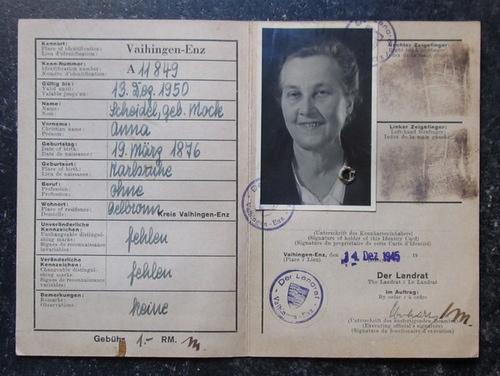 Kennort:
Place of identification:
Lieu d'identification:
Vaihingen-Enz
Kenn-Nummer:
Identification number:
Numéro d'identité:
A 11849
Gültig bis
Valid until:
Valable jusqu'au:
13. Dez. 1950
Name:
Name:
Nom:
Scheidel, geb. Mock
Vorname:
Christian name:
Prénom:
Anna
Geburtstag:
Date of birth:
Date de naissance:
19. März 1876
Geburtsort:
Place of birth:
Lieu de naissance:
Karlsruhe
Beruf:
Profession:
Profession:
Ohne
Wohnort:
Place of residence:
Domicile:
Kreis Vaihingen-Enz
Unveränderliche
Kennzeichen:
Unchangeable distinguishing marks:
Signes de reconnaissance
invariables:
fehlen
Veränderliche
Kennzeichen:
Changeable distinguishing
marks:
Signes de reconnaissance
variables:
fehlen
Bemerkungen:
Remarks:
Observations:
Keine
Gebühr 1.- RM.
Rechter Zeigefinger
Linker Zeigefinger:
Left-hand forefinger
Index de la main gauche
(Unterschrift des Kennkarteninhabers)
(Signature of holder of this Identity Card)
(Signature du propriétaire de cette Carte d'Identité)
Vaihingen-Enz, den 14. Dez. 1945
(Place / Lieu)
Der Landrat
The Landrat / Le Landrat
Im Auftrag:
By order / à ordre
(Unterschrift des ausfertigenden Beamten)
(Executing official's signature)
(Signature du fonctionnaire d'exécution)
Der Landrat
Vaihingen-Enz